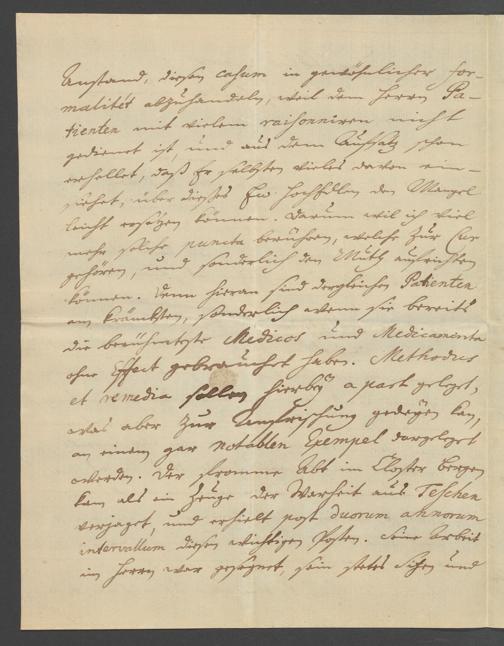 Anstand, diesen casum in gewöhnlicher for-
malitét abzuhandeln, weil dem Herrn Pa-
tienten mit vielem raisonniren nicht
gedienet ist, und aus dem Aufsatz schon
erhellet, daß Er selbsten vieles davon ein-
siehet, über dieses Ew. Hochedlen den Mangel
leicht ersetzen können. Darum wil ich viel
mehr solche puncta berühren, welche zur Cur
gehören, und sonderlich den Muth aufrichten
können. Denn hieran sind dergleichen Patienten
am kränksten, sonderlich wenn sie bereits
die berühmteste Medicos und Medicamenta
ohne Effect gebrauchet haben. Methodus
et remedia sollen hierbey a part gelegt,
was aber zur Aufrichtung gedeyen kan,
an einem gar notablen Exempel dargelegt
werden. Der fromme Abt im Closter Bergen
kam als ein Zeuge der Warheit aus Teschen
verjaget, und erhielt post duorum annorum
intervallum diesen wichtigen Posten. Seine Arbeit
im Herrn war gesegnet, sein stetes Sitzen und